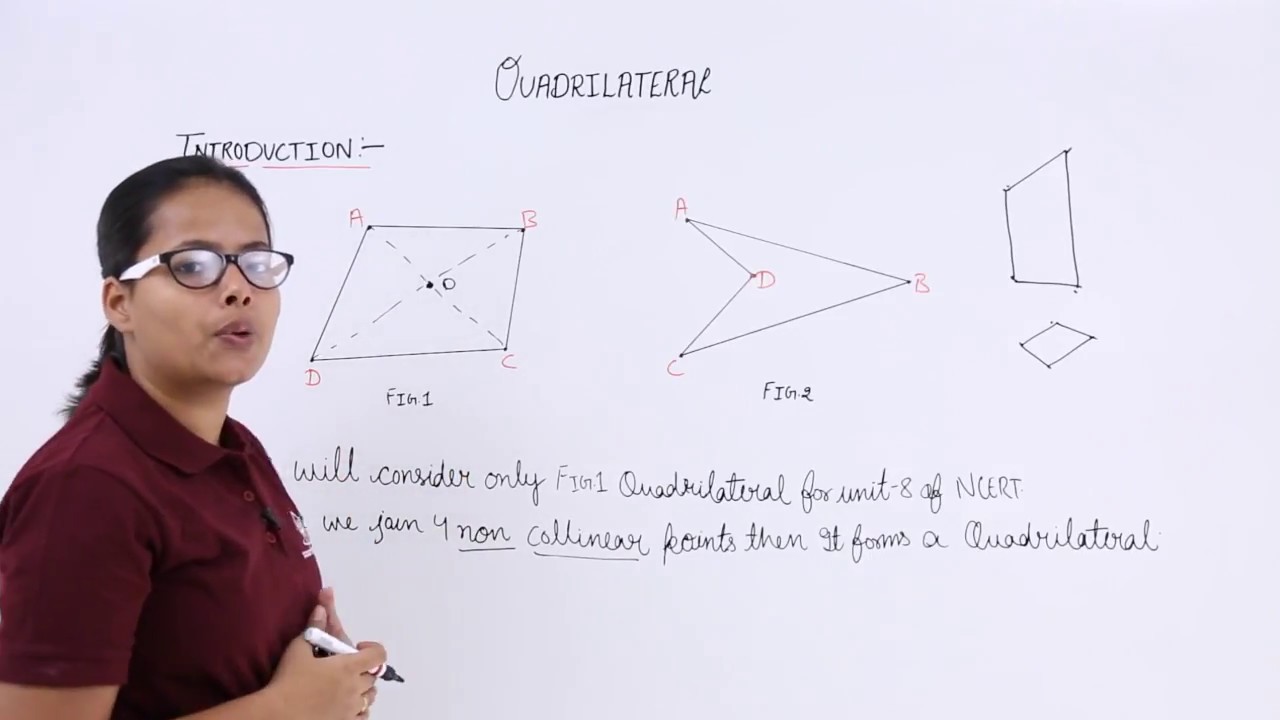 QUADRILATERAL
INTRODUCTION:-
A B
O
D C
FIG.1
A
D B
C
FIG.2
will consider only FIG.1 Quadrilateral for unit-8 of NCERT.
we join 4 non collinear points then It forms a Quadrilateral.